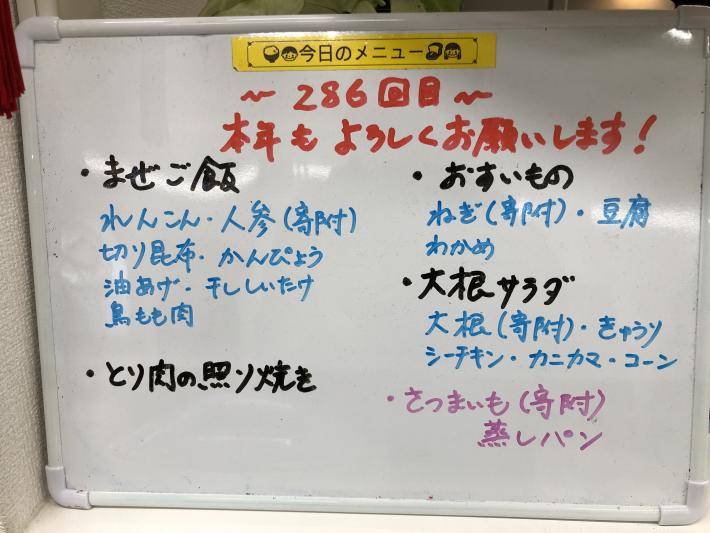 今日のメニュー
～286回目～
本年もよろしくお願いします!
・まぜご飯
れんこん・人参(寄附)
切り昆布・かんぴょう
油あげ・干ししいたけ
鳥もも肉
・とり肉の照り焼き
・おすいもの
ねぎ(寄附)・豆腐
わかめ
・大根サラダ
大根(寄附)・きゅうり
シーチキン・カニカマ・コーン
・さつまいも(寄附)
蒸しパン